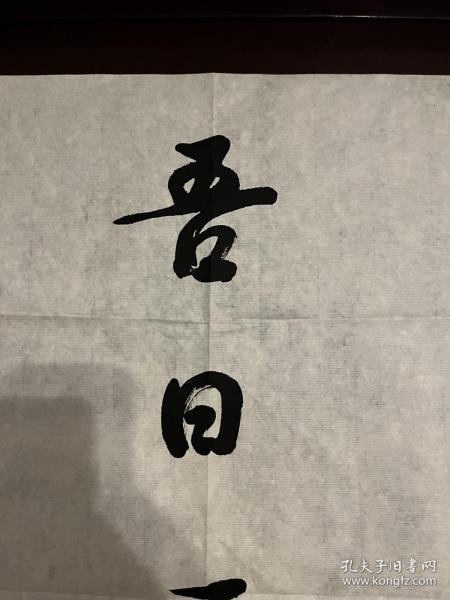 吾日
孔夫子旧书网
www.kongfz.com